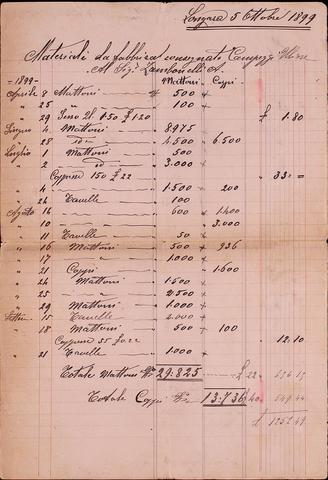 Longara 5 Ottobre 1899
Materiali da fabbrica consegnato
Al Sig. Zambonelli A.
1899 Mattoni Coppi
Aprile 8 Mattoni 500
" 25 " 100
" 29 1.50 £ 1.20 £ 1.80
Giugno 4 Mattoni 8975
" 28 id 4.500 6.500
Luglio 1 Mattoni 500
" 2 id 3.000
Coppone 150 £ 22 33 =
" 4 1.500 200
" 24 Tavelle 100
Agosto 16 600 1.400
" 10 3.000
" 11 Tavelle 50
" 16 Mattoni 500 936
" 17 " 1.000
" 21 Coppi 1.600
" 24 Mattoni 1.500
" 25 " 2.500
" 29 Mattoni 1.000
Settbre 15 Tavelle 2.000
" 18 Mattoni 500 100
Coppone 55 £ 0.22 12.10
" 21 Tavelle 1.000
Totale Mattoni No 29.825 £ 22
Totale Coppi No 13.736 40 549.44
£ 1252.49